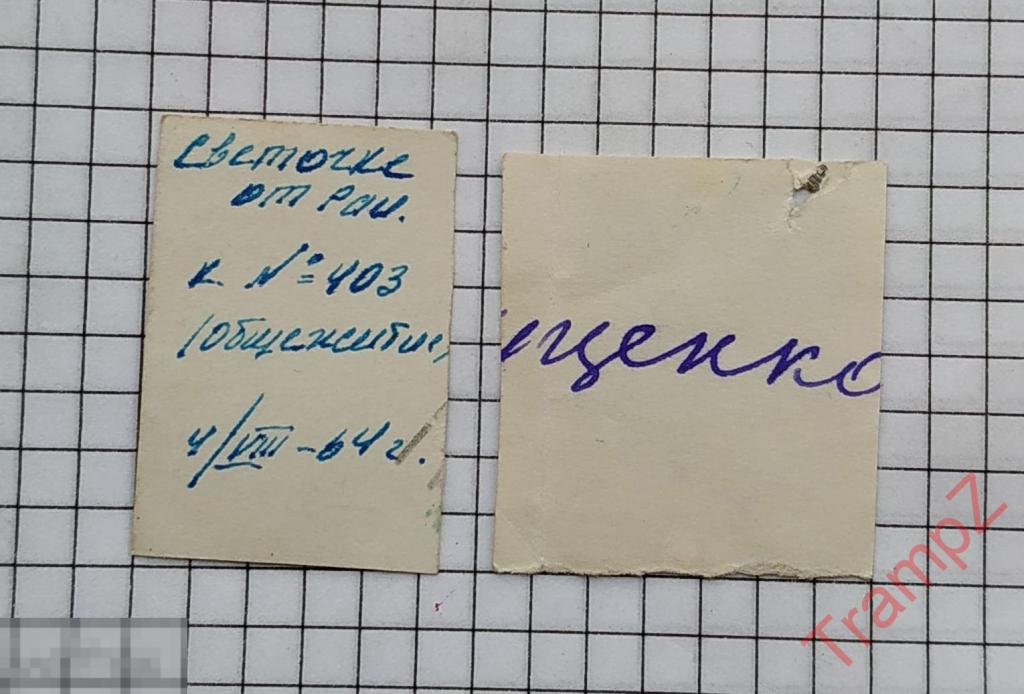 Светочке
от Раи.
к. № 403
(общежитие)
4/VIII-64 г.
ищенко
TrampZ